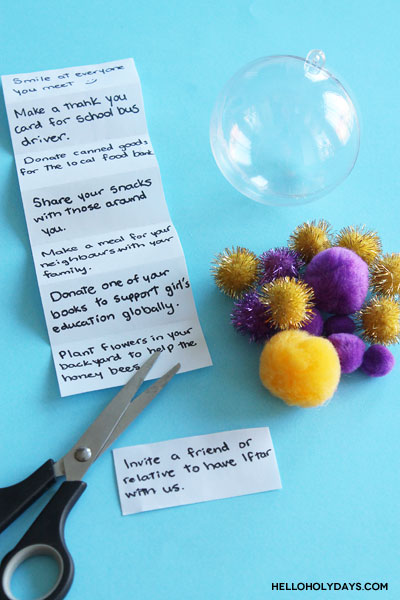 Smile at everyone
you meet
Make a thank you
card for school bus
driver.
Donate canned goods
for the local food bank
Share your snacks
with those around
you.
Make a meal for your
neighbours with your
family.
Donate one of your
books to support girl's
education globally.
Plant flowers in your
backyard to help the
honey bees
Invite a friend or
relative to have Iftar
with us.
HELLOHOLYDAYS.COM